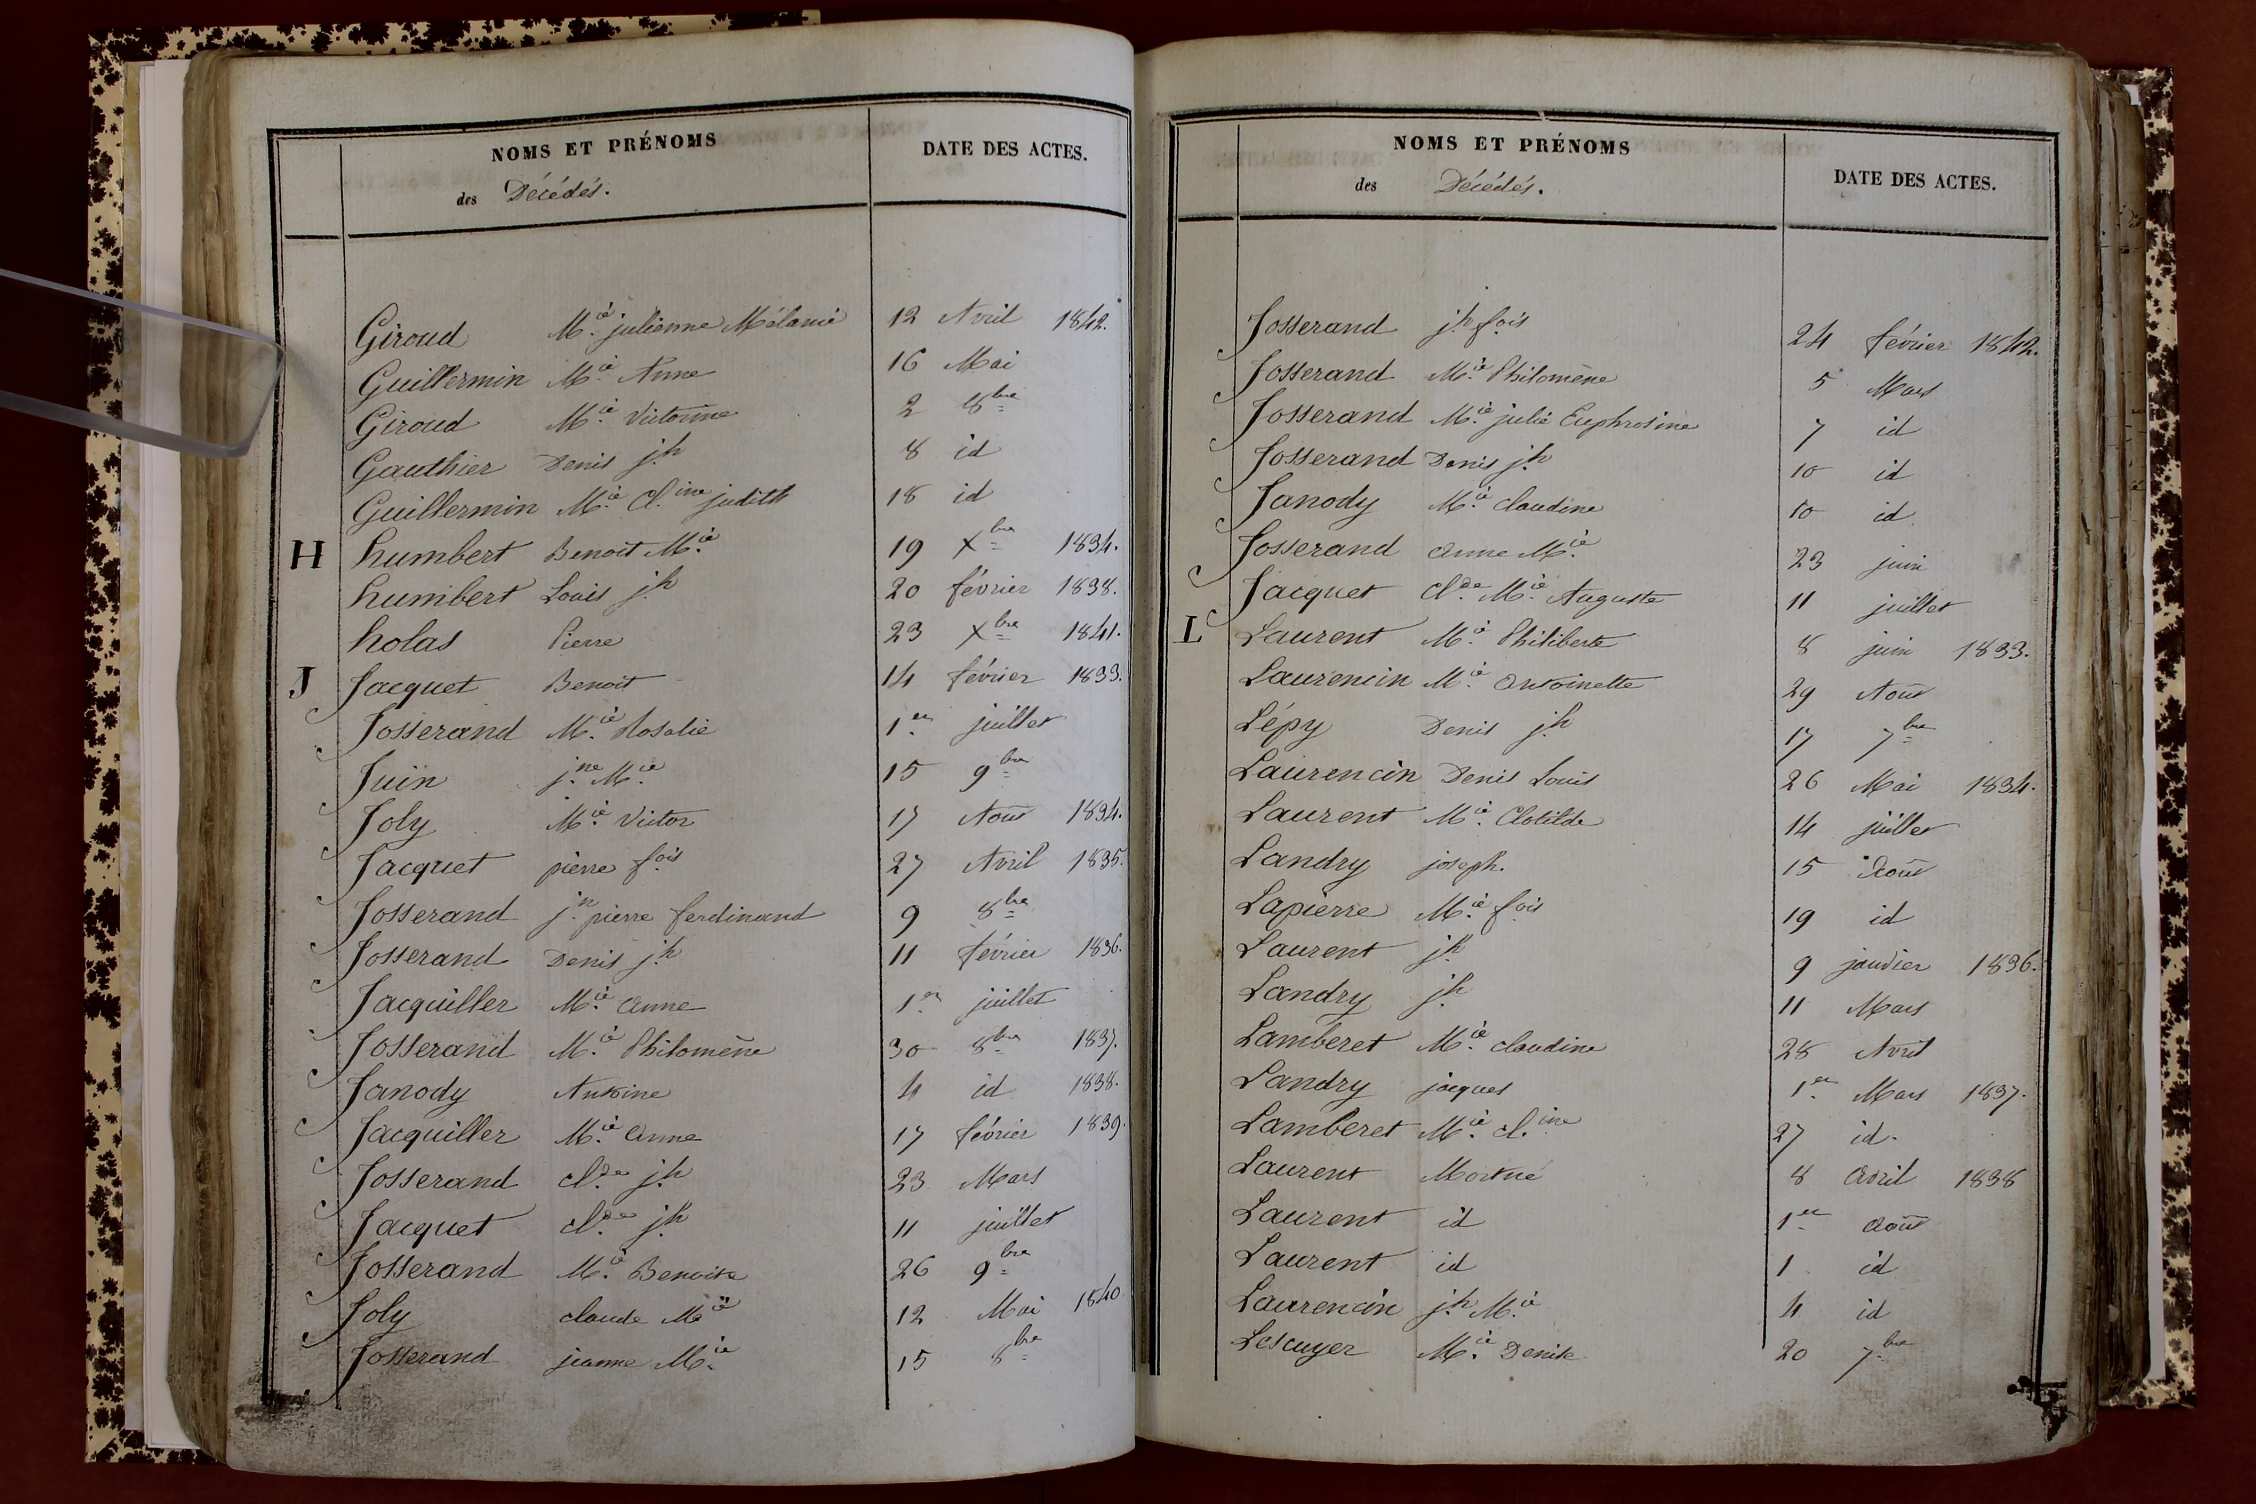 NOMS ET PRÉNOMS
des Décédés.
DATE DES ACTES.
Giroud M.ie julienne Mélanie 12 Avril 1842.
Guillermin M.ie Anne 16 Mai
Giroud M.ie Victorine 2 8bre
Gauthier Denis j.h 8 id
Guillermin M.ie Cl.ine judith 18 id
H humbert Benoit M.ie 19 Xbre 1834.
humbert Louis j.h 20 février 1838.
holas Pierre 23 Xbre 1841.
J Jacquet Benoit 14 février 1833.
Josserand M.ie Rosalie 1er juillet
Juin j.ne M.ie 15 9bre
Joly M.ie Victor 17 Aout 1834.
Jacquet pierre f.ois 27 Avril 1835.
Josserand j.n pierre ferdinand 9 8bre
Josserand Denis j.h 11 février 1836.
Jacquiller M.ie Anne 1er juillet
Josserand M.ie Philomène 30 8bre 1837.
Janody Antoine 4 id 1838.
Jacquiller M.ie Anne 17 février 1839.
Josserand cl.de j.h 23 Mars
Jacquet cl.de j.h 11 juillet
Josserand M.ie Benoite 26 9bre
Joly claude M.ie 12 Mai 1840
Josserand jeanne M.ie 15 8bre
NOMS ET PRÉNOMS
des Décédés.
DATE DES ACTES.
Josserand j.h f.ois 24 février 1842.
Josserand M.ie Philomène 5 Mars
Josserand M.ie julie Euphrosine 7 id
Josserand Denis j.h 10 id
Janody M.ie Claudine 10 id
Josserand Anne M.ie 23 juin
Jacquet cl.de M.ie Auguste 11 juillet
L Laurent M.ie Philiberte 8 juin 1833.
Laurencin M.ie Antoinette 29 Aout
Lépy Denis j.h 17 7bre
Laurencin Denis Louis 26 Mai 1834.
Laurent M.ie Clotilde 14 juillet
Landry joseph. 15 Aout
Lapierre M.ie f.ois 19 id
Laurent j.h 9 janvier 1836.
Landry j.h 11 Mars
Lamberet M.ie claudine 28 Avril
Landry jacques 1er Mars 1837.
Lamberet M.ie cl.ine 27 id.
Laurent Mortné 8 avril 1838
Laurent id 1er Aout
Laurent id 1 id
Laurencin j.h M.ie 4 id
Lescuyer M.ie Denise 20 7bre